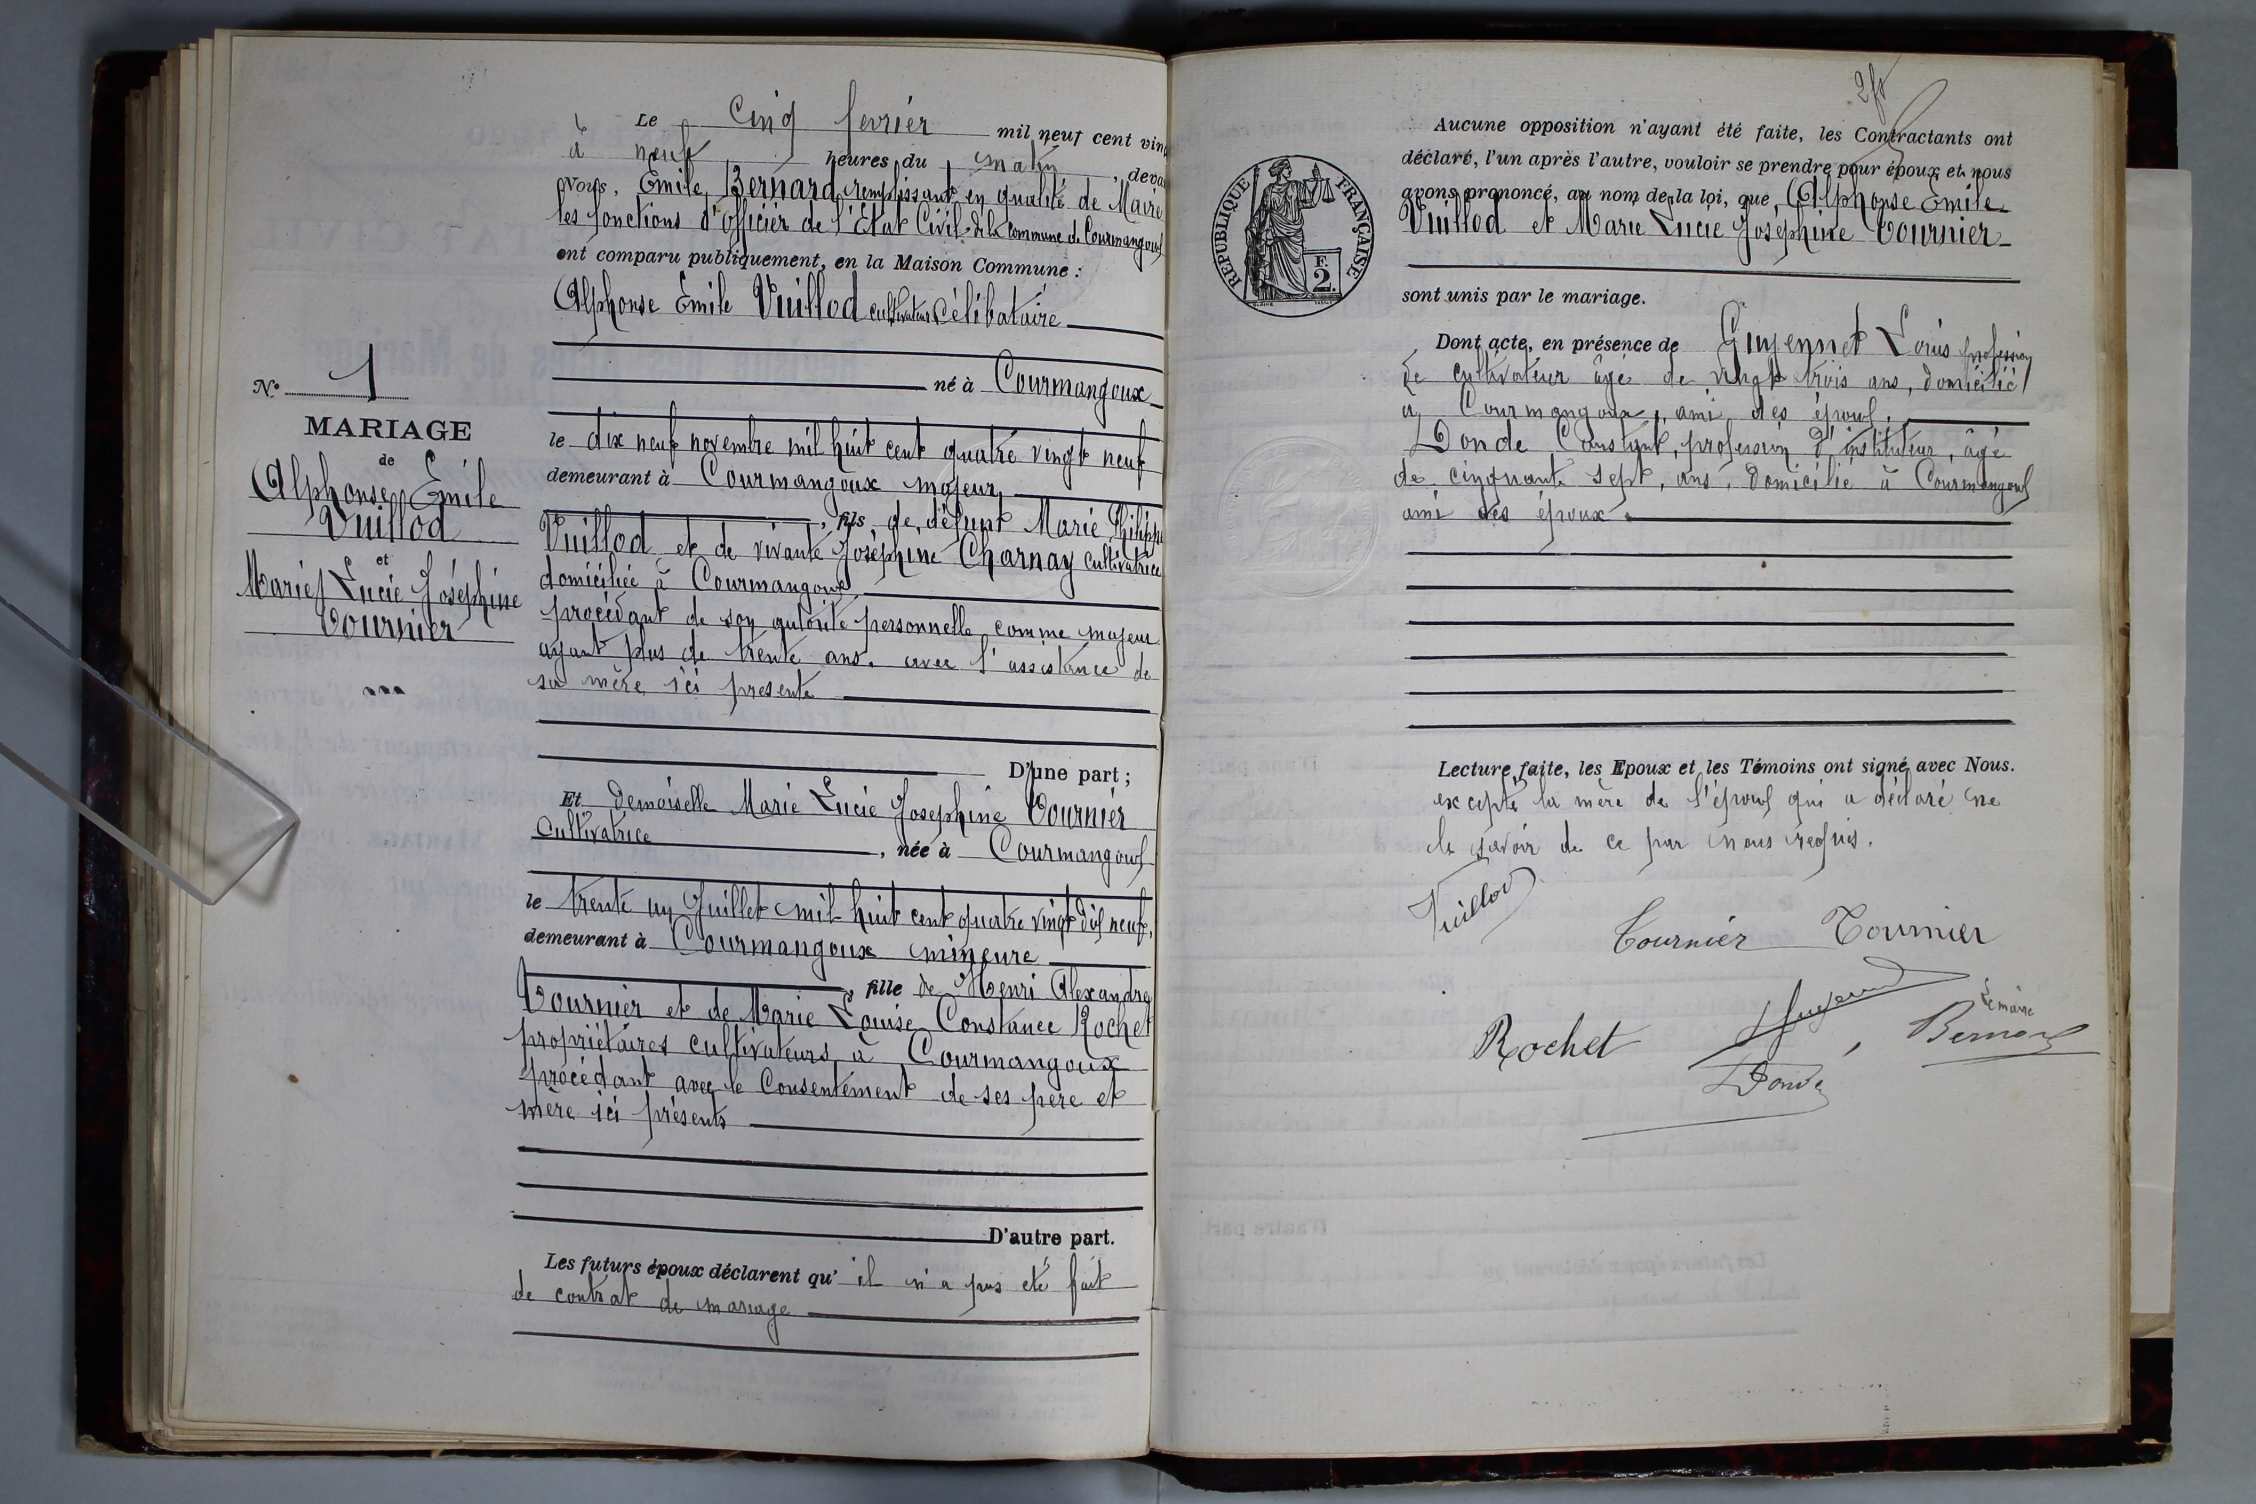 Le cinq février mil neuf cent vin
à neuf heures du matin, deva
Nous, Emile Bernard remplissant en qualité de Maire
les fonctions d'officier de l'Etat Civil de la commune de Courmangoux
ont comparu publiquement, en la Maison Commune :
Alphonse Emile Vuillod cultivateur célibataire
né à Courmangoux
N° 1
MARIAGE
de
Alphonse Emile
Vuillod
et
Marie Lucie Joséphine
Tournier
le dix neuf novembre mil huit cent quatre vingt neuf
demeurant à Courmangoux majeur,
, fils de défunt Marie Philippe
Vuillod et de vivante Joséphine Charnay cultivatrice
domiciliée à Courmangoux
procédant de son autorité personnelle comme majeur
ayant plus de trente ans. avec l'assistance de
sa mère ici présente
D'une part ;
Et demoiselle Marie Lucie Josephine Tournier
cultivatrice, née à Courmangoux
le trente un Juillet mil huit cent quatre vingt dix neuf,
demeurant à Courmangoux mineure
, fille de Henri Alexandre
Tournier et de Marie Louise Constance Rochet
propriétaires cultivateurs à Courmangoux
procédant avec le Consentement de ses père et
mère ici présents
D'autre part.
Les futurs époux déclarent qu'il n'a pas été fait
de contrat de mariage
Aucune opposition n'ayant été faite, les Contractants ont
déclaré, l'un après l'autre, vouloir se prendre pour époux et nous
avons prononcé, au nom de la loi, que Alphonse Emile
Vuillod et Marie Lucie Joséphine Tournier
RÉPUBLIQUE FRANÇAISE
F.
2.
sont unis par le mariage.
Dont acte, en présence de Guyennet Louis profession
de cultivateur âgé de vingt trois ans, domicilié
à Courmangoux, ami des époux.
Donde Constant, profession d'instituteur, âgé
de cinquante sept, ans, domicilié à Courmangoux
ami des époux.
Lecture faite, les Epoux et les Témoins ont signé avec Nous.
excepté la mère de l'époux qui a déclaré ne
le savoir de ce par nous requis.
Vuillod
Tournier Tournier
Le maire
Rochet Bernard
Donde